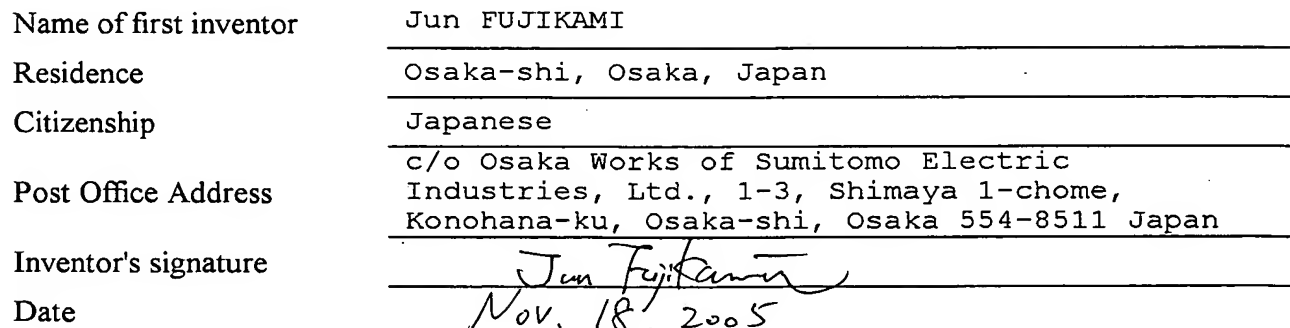 Name of first inventor Jun FUJIKAMI
Residence Osaka-shi, Osaka, Japan
Citizenship Japanese
Post Office Address c/o Osaka Works of Sumitomo Electric
Industries, Ltd., 1-3, Shimaya 1-chome,
Konohana-ku, Osaka-shi, Osaka 554-8511 Japan
Inventor's signature Jun Fujikami
Date Nov. 18 2005